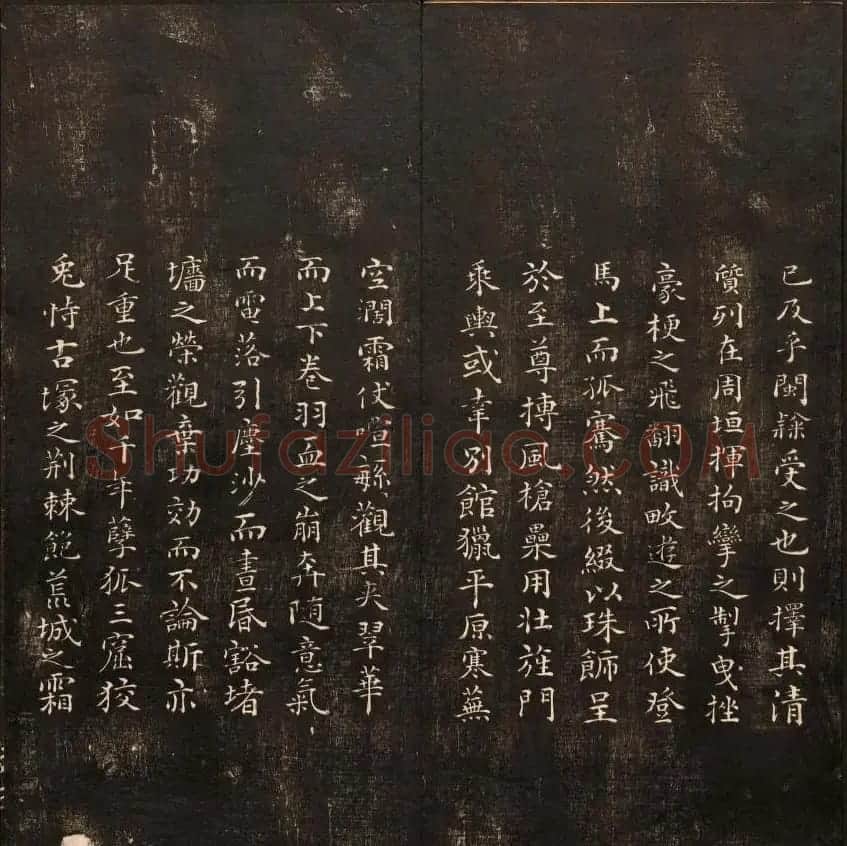 已及乎閩隸受之也則擇其清
質列在周垣揮拘攣之掣曳挫
豪梗之飛翻識畋遊之所使登
馬上而孤騫然後綴以珠飾呈
於至尊摶風槍纍用壯旌門
乘輿或幸別館獵平原寒蕪
空濶霜仗喧繁觀其夾翠華
而上下卷羽血之崩奔随意氣
而電落引塵沙而晝昏豁堵
墻之榮觀棄功効而不論斯亦
足重也至如千年孽狐三窟狡
兎恃古塚之荆棘飽荒城之霜
Shufaziliao.COM